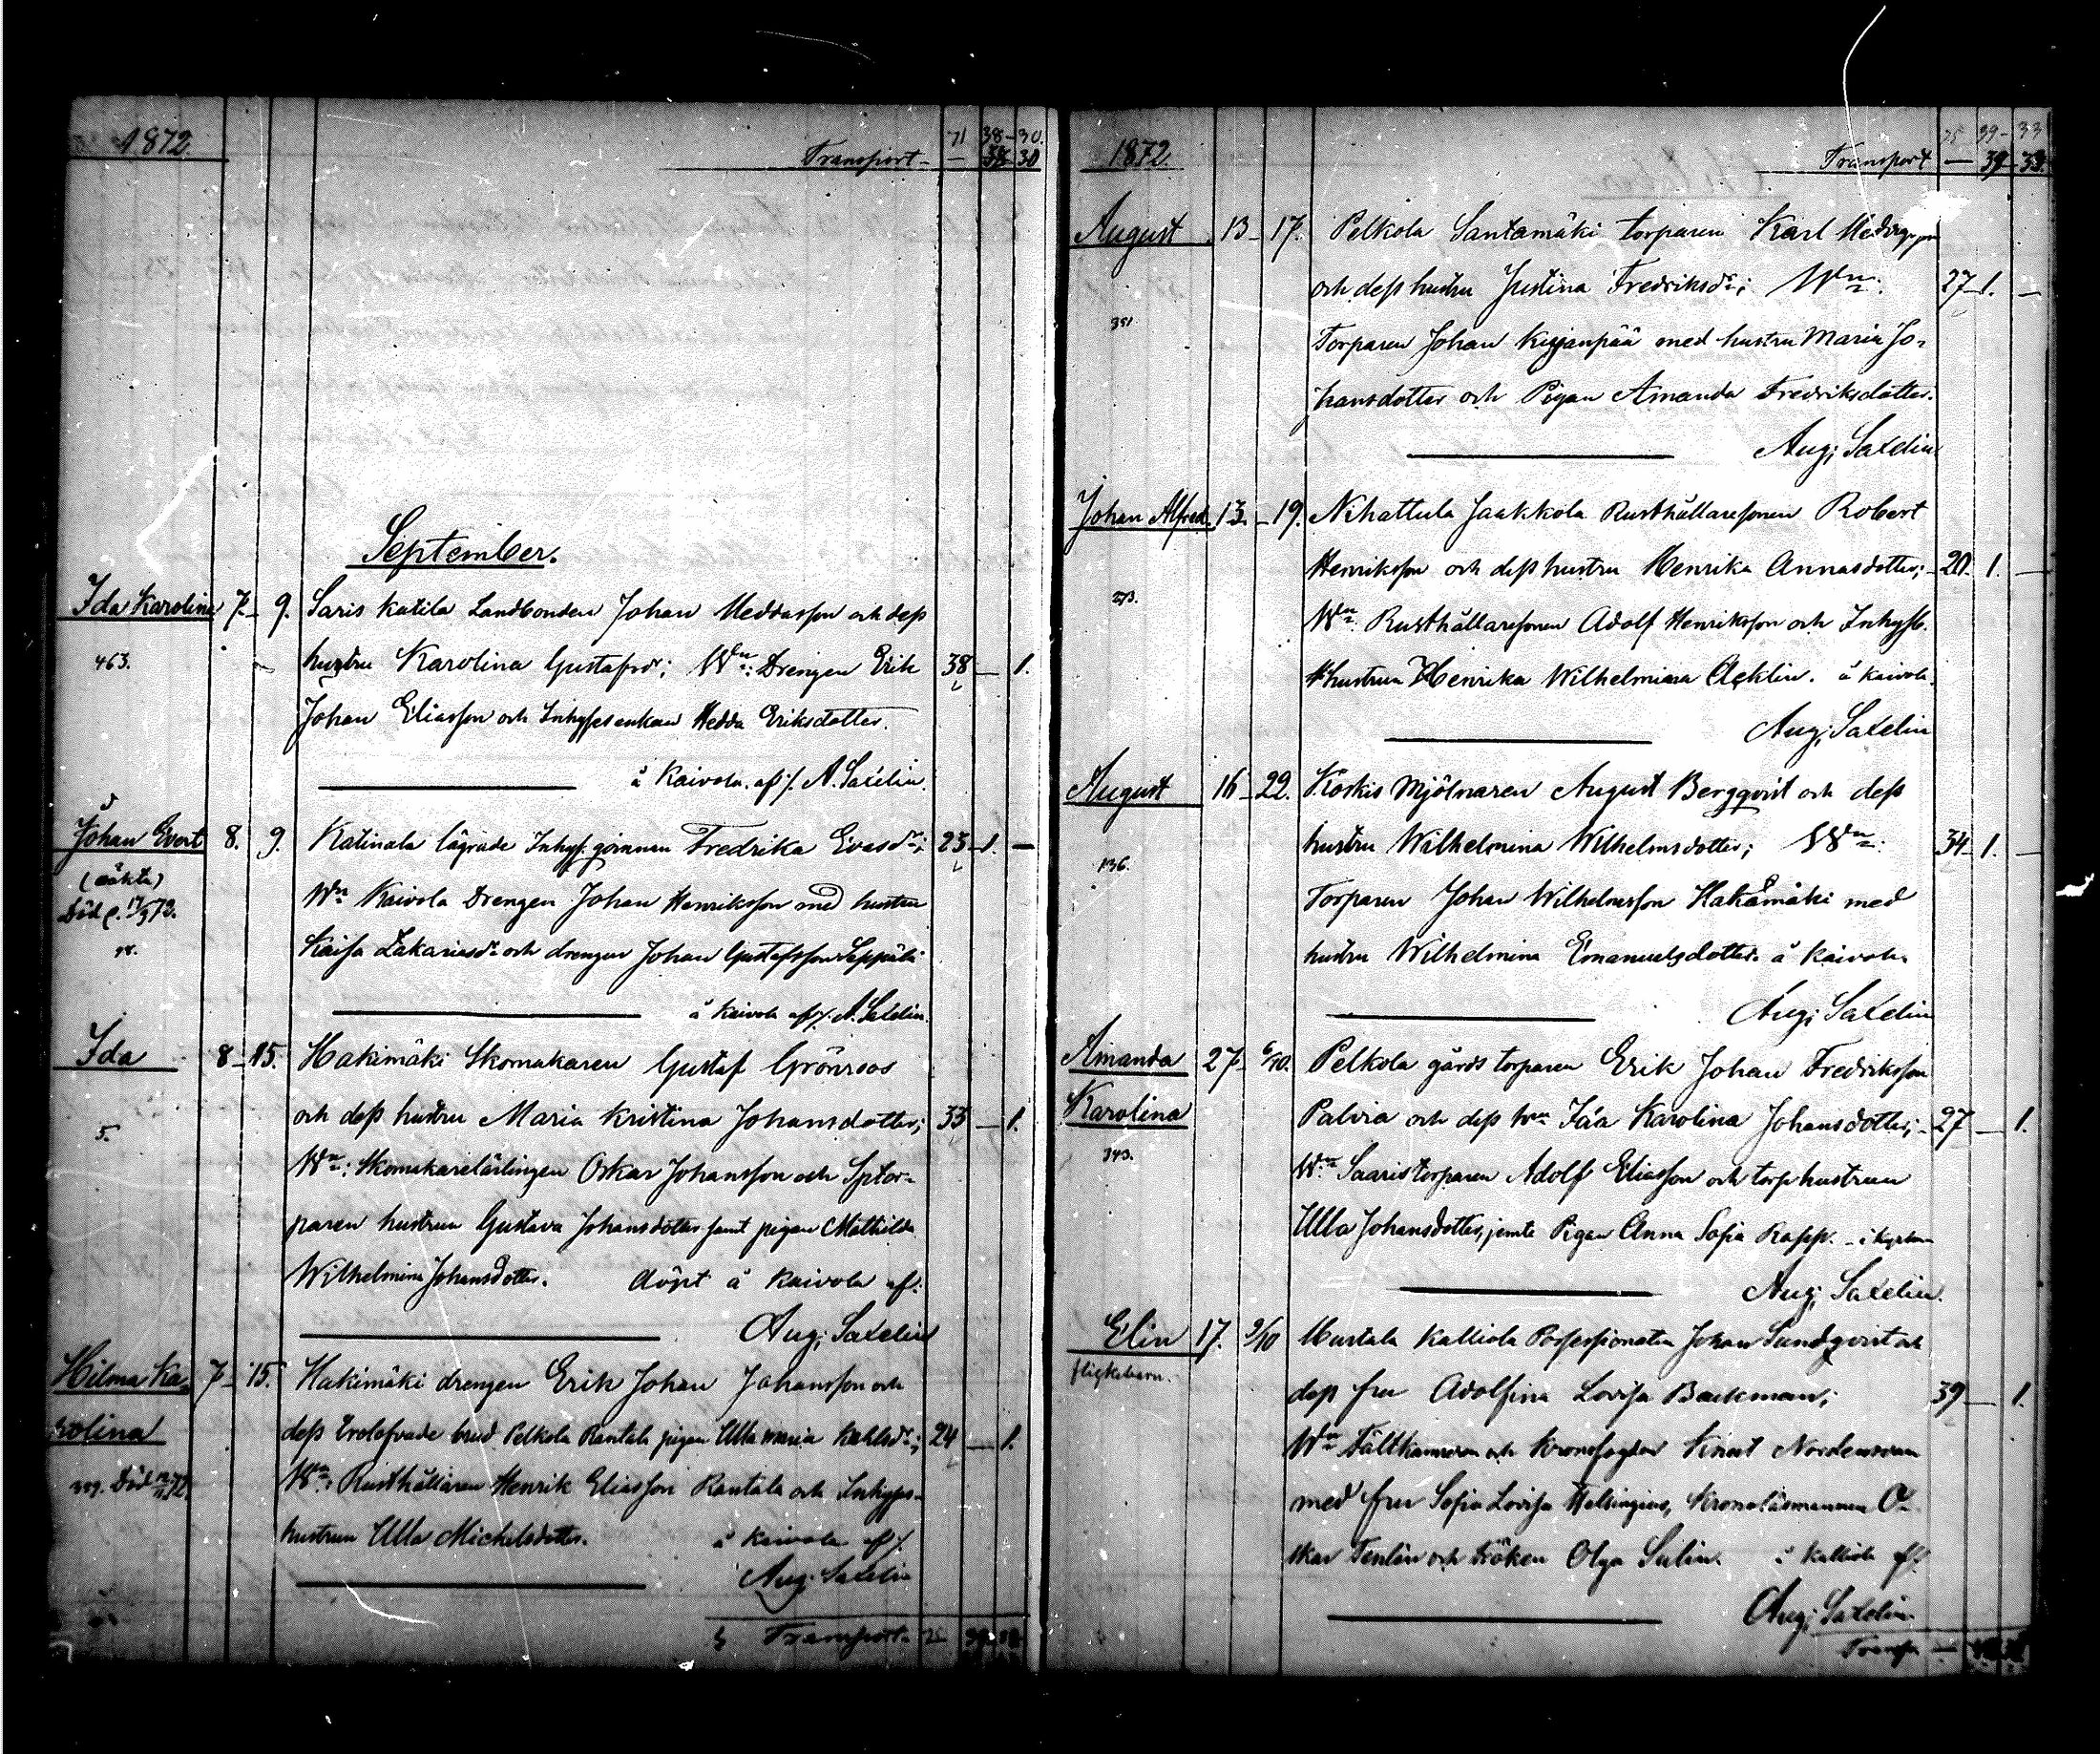 1872. Transport - 71 38 - 30.
— 38 30
September.
Ida Karolina 7. - 9. Saris Katila Landbonden Johan Meddasson och dess
463. hustru Karolina Gustafsdr; Wn: Drengen Erik 38 — 1.
Johan Eliasson och Inhysesenkan Hedda Eriksdotter.
å Kaivola. af /. A. Saxelin.
Johan Evert 8. 9. Katinala lägrade Inhys. qvinnan Fredrika Evasdr; 23 - 1. —
(oäkta)
Död d. 17/9 72. Wn Kaivola Drengen Johan Henriksson med hustru
Kaisa Zakariasdr och drengen Johan Gustafsson Seppälä
å Kaivola af /. A. Saxelin.
Ida 8 - 15. Hakimäki Skomakaren Gustaf Grönroos
5. och dess hustru Maria Kristina Johansdotter; 33 — 1.
Wn: Skomakarelärlingen Oskar Johansson och Sptor-
paren hustrun Gustava Johansdotter samt pigan Mathilda
Wilhelmina Johansdotter. döpt å Kaivola af:
Aug; Saxelin
Hilma Ka- 7 - 15. Hakimäki drengen Erik Johan Johansson och
rolina dess trolofvade brud Pelkola Rantala pigan Ulla Maria Kahlsdr; 24 — 1.
Död Wn: Rusthållaren Henrik Eliasson Rantala och Inhyses-
hustrun Ulla Michelsdotter. å Kaivola af /.
Aug. Saxelin
Transport.
1872. Transport 75 39 - 33
— 39 - 33.
August 13 - 17. Pelkola Santamäki torparen Karl
351. och dess hustru Justina Fredriksdr; Wn: 27 - 1. —
Torparen Johan Kujanpää med hustru Maria Jo-
hansdotter och Pigan Amanda Fredriksdotter.
Aug; Saxelin
Johan Alfred. 13. - 19. Nihattula Jaakkola Rusthållaresonen Robert
Henriksson och dess hustru Henrika Annasdotter; - 20. 1. —
273. Wn: Rusthållaresonen Adolf Henriksson och Inhys.
hustrun Henrika Wilhelmina Acklin. å Kaivola.
Aug; Saxelin
August 16 - 22. Koskis Mjölnaren August Bergqvist och dess
136. hustru Wilhelmina Wilhelmsdotter; Wn: 34 - 1. —
Torparen Johan Wilhelmsson Hakamäki med
hustru Wilhelmina Emanuelsdotter. å Kaivola
Aug; Saxelin
Amanda 27 - 6/10. Pelkola gårds torparen Erik Johan Fredriksson
Karolina Palvia och dess hru Ida Karolina Johansdotter; - 27 — 1.
343. Wn: Saaris torparen Adolf Eliasson och torp hustrun
Ulla Johansdotter, jemte Pigan Anna Sofia Rapp. - i kyrkan
Aug; Saxelin.
Elin 17. 9/10 Mustala Kalliola Possessionaten Johan Sundqvist och
flickebarn. dess fru Adolfina Lovisa Backman; 39 — 1.
Wn: Fältkamreren och Kronofogden Knut Nordenswan
med fru Sofia Lovisa Helsingius, Kronolänsmannen O-
skar Tenlén och Fröken Olga Salin. å Kalliola af.
Aug; Saxelin.
Transp —